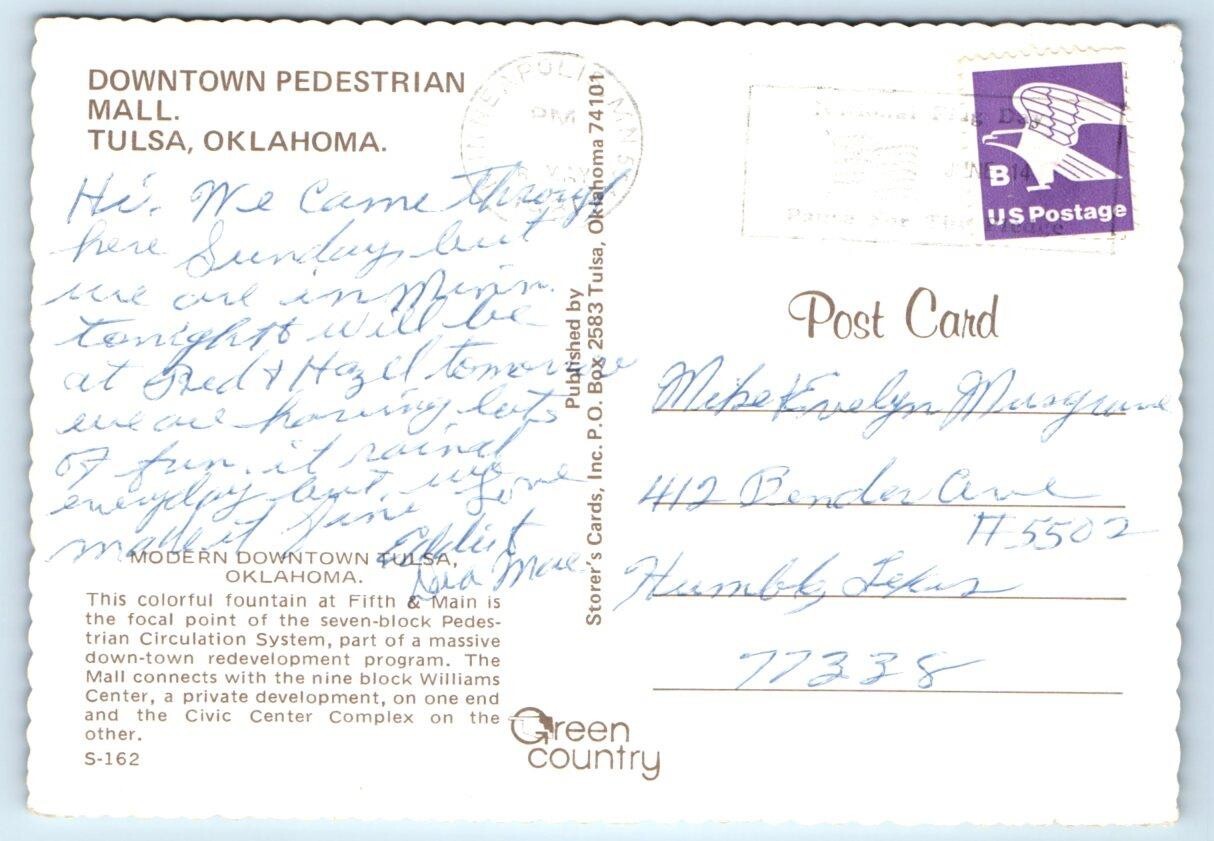 DOWNTOWN PEDESTRIAN
MALL.
TULSA, OKLAHOMA.
Hi. We came through
here Sunday, but
we are in Minn.
tonight will be
at Fred & Hazel tomorrow
we are having lots
of fun. it raind
everyday but we
made it fine Love
Eddie &
Mae
MODERN DOWNTOWN TULSA,
OKLAHOMA.
This colorful fountain at Fifth & Main is
the focal point of the seven-block Pedes-
trian Circulation System, part of a massive
down-town redevelopment program. The
Mall connects with the nine block Williams
Center, a private development, on one end
and the Civic Center Complex on the
other.
S-162
Published by
Storer's Cards, Inc. P.O. Box 2583 Tulsa, Oklahoma 74101
Green
country
PM
MN
National Flag Day
JUNE 14
Pause For The Pledge
B
US Postage
Post Card
Mike & Evelyn Musgrove
412 Bender Ave
#5502
Humble, Texas
77338